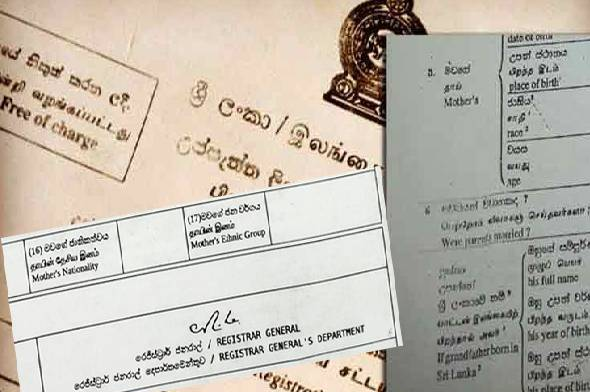 නිකුත් කරන ලදී
வழங்கப்பட்டது
Free of charge
ශ්‍රී ලංකා / இலங்கை
උප්පැන්න
(16) මවගේ ජාතිකත්වය
தாயின் தேசிய இனம்
Mother's Nationality
(17) මවගේ ජන වර්ගය
தாயின் இனம்
Mother's Ethnic Group
රෙජිස්ට්‍රාර් ජනරාල් / REGISTRAR GENERAL
රෙජිස්ට්‍රාර් ජනරාල් දෙපාර්තමේන්තුව / REGISTRAR GENERAL'S DEPARTMENT
date of birth
5. මවගේ
தாய்
Mother's
උපන් ස්ථානය
பிறந்த இடம்
place of birth
ජාතිය
சாதி
race
වයස
வயது
age
6
Were parents married ?
ශ්‍රී ලංකාවේ නම්
If grandfather born in
Sri Lanka
ඔහුගේ සම්පූර්
முழுப் பெயர்
his full name
ඔහු උපන් වර්
பிறந்த வருடம்
his year of birth
ඔහු උපන් ස්
பிறந்த இடம்
his place of birth